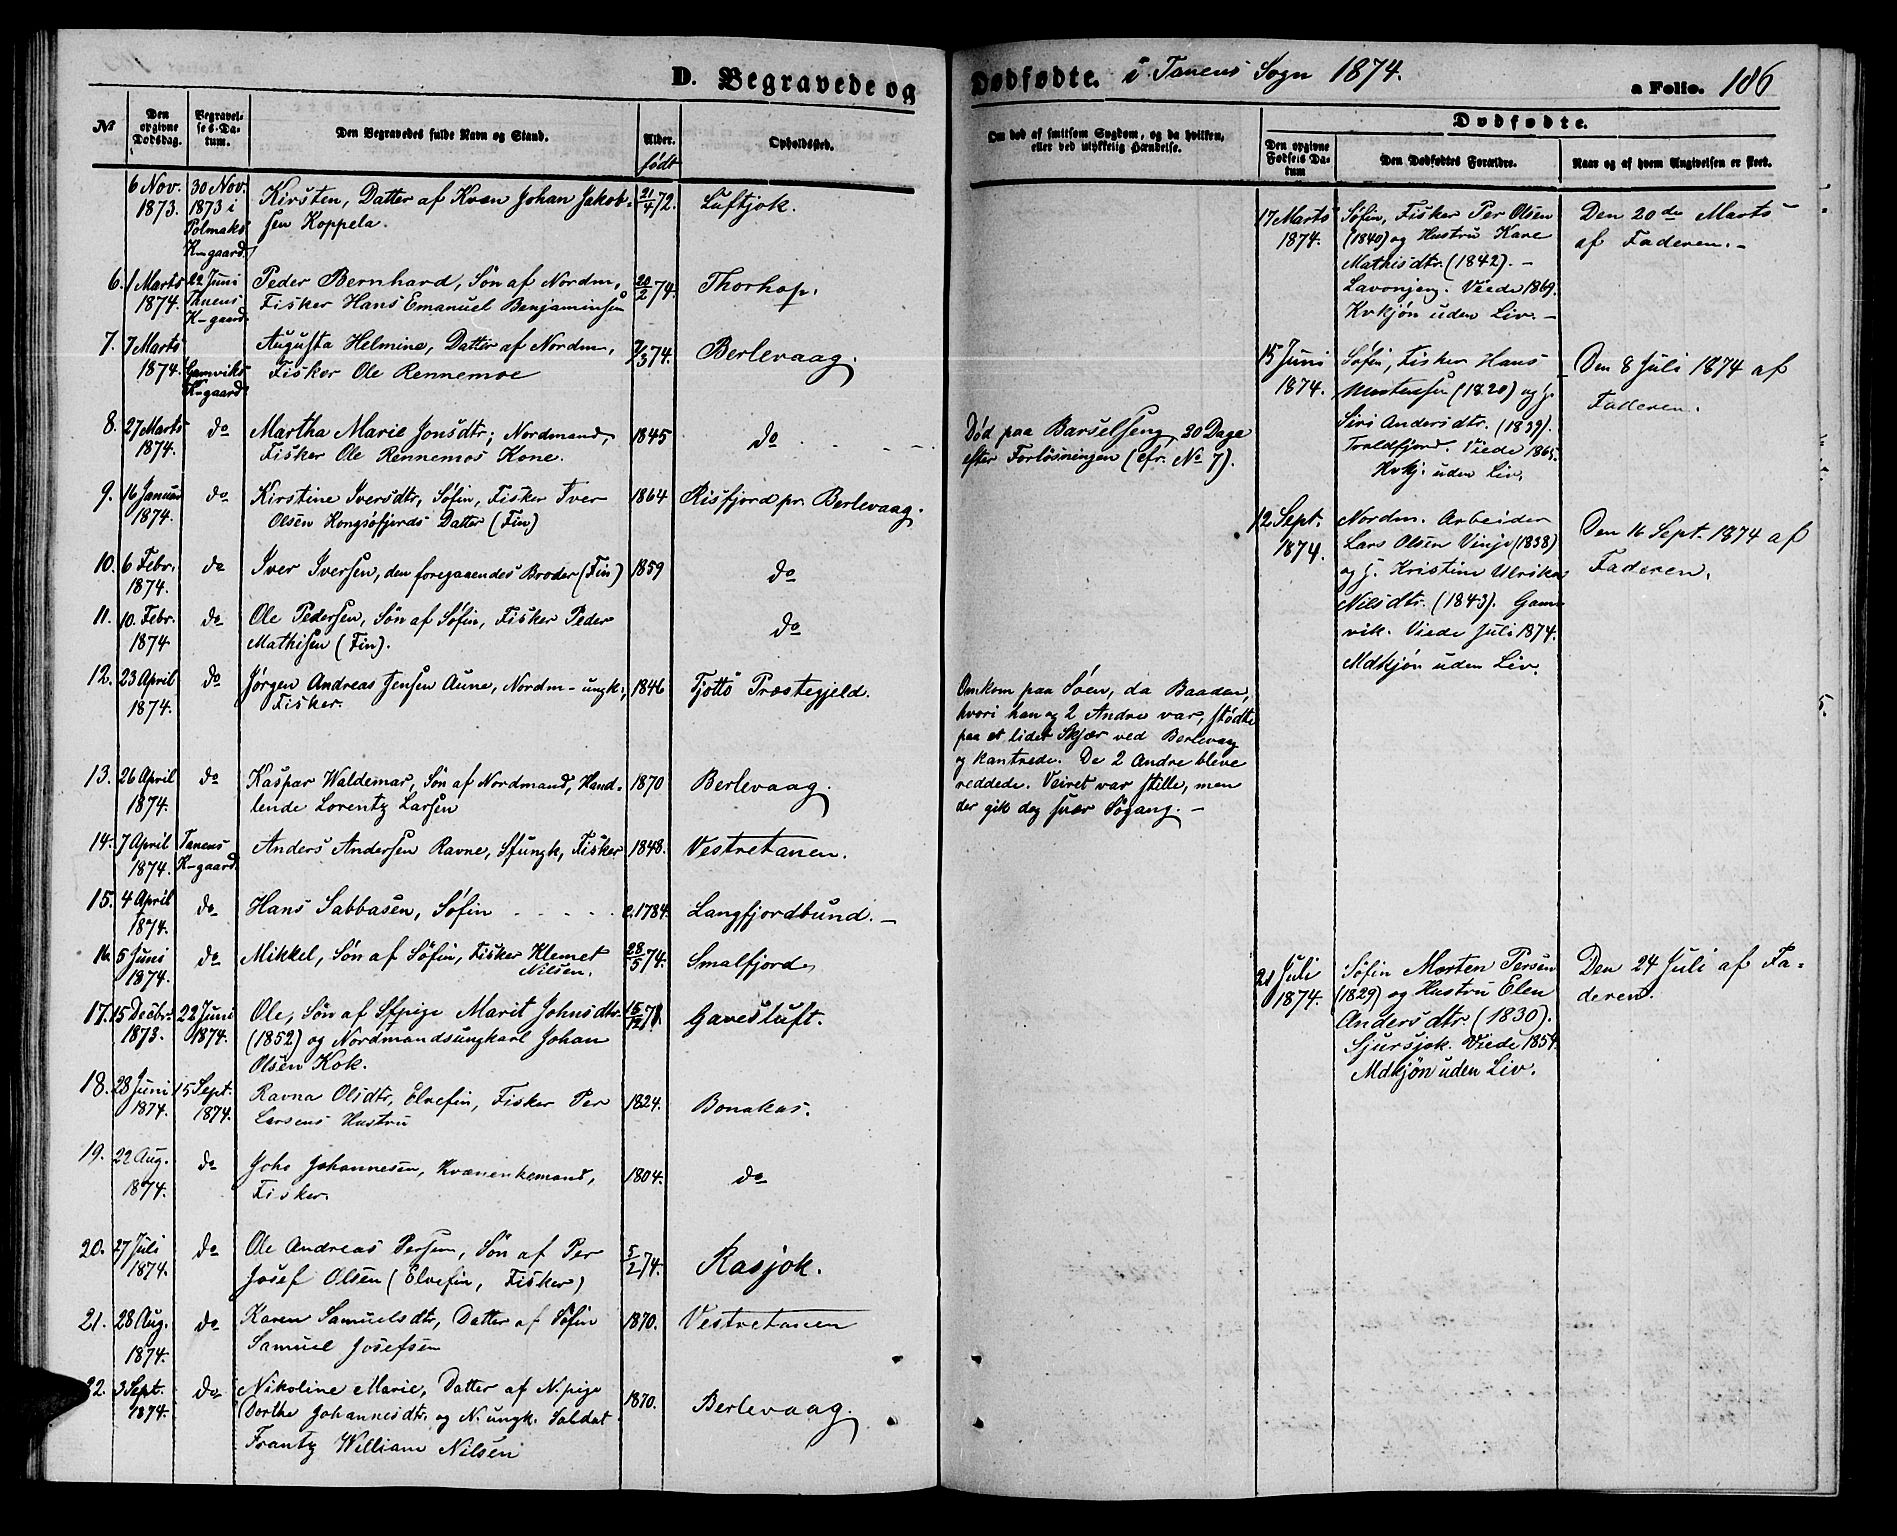 D. Begravede og Dødfødte. i Tanens Sogn 1874. a Folio. 186
No
Den opgivne Dødsdag.
Begravelses-Datum.
Den Begravedes fulde Navn og Stand.
Alder. født
Opholdssted.
Om død af smitsom Sygdom, og da hvilken, eller ved ulykkelig Hændelse.
Dødfødte.
Den opgivne Fødsels Datum
Den Dødfødtes Forældre.
Naar og af hvem Angivelsen er skeet.
6 Nov. 1873. 30 Nov. 1873 i Polmaks K-gaard. Kirsten, Datter af Kvæn Johan Jakob- 21/4 72. Luftjok.
sen Koppela.
6. 1 Marts 1874. 22 Juni Tanens K-gaard. Peder Bernhard, Søn af Nordm, 20/2 74. Thorhop.
Fisker Hans Emanuel Benjaminsen
7. 7 Marts 1874. Gamviks K-gaard. Augusta Helmine, Datter af Nordm, 7/3 74. Berlevaag.
Fisker Ole Rennemoe
8. 27 Marts 1874. do Martha Marie Jonsdtr; Nordmand, 1845 do
Fisker Ole Rennemos Kone.
Død paa Barselseng, 30 Dage
efter Forløsningen (cfr. No 7).
9. 16 Januar 1874. do Kirstine Iversdtr, Søfin, Fisker Iver 1864 Risfjord pr. Berlevaag.
Olsen Kongsøfjords Datter (Fin)
10. 6 Febr. 1874. do Iver Iversen, den foregaaendes Broder (Fin) 1859 do
11. 10. Febr. 1874 do Ole Pedersen, Søn af Søfin, Fisker Peder do
Mathisen (Fin).
12. 23 April 1874. do Jørgen Andreas Jensen Aune, Nordm-ungk:, 1846 Tjøttø Præstegjeld.
Fisker.
Omkom paa Søen, da Baaden,
hvori han og 2 Andre var, stødte
paa et lidet Skjær ved Berlevaag
og kantrede. De 2 Andre bleve
reddede. Veiret var stille, men
der gik dog svær Søgang. -
13. 26 April 1874. do Kaspar Waldemar, Søn af Nordmand, Hand- 1870 Berlevaag.
lende Lorentz Larsen
14. 7 April 1874. Tanens K-gaard. Anders Andersen Ravne, Sfungk, Fisker 1848. Vestretanen.
15. 4 April 1874. do Hans Sabbasen, Søfin c. 1784. Langfjordbund. -
16. 5 Juni 1874. do Mikkel, Søn af Søfin, Fisker Klemet 28/5 74. Smalfjord
Nilsen.
17. 15 Decbr. 1873. 22 Juni 1874. Ole, Søn af Sfpige Marit Johnsdtr. 15/12 73. Gavesluft.
(1852) og Nordmandsungkarl Johan
Olsen Kok.
18. 28 Juni 1874. 15 Sept. 1874. Ravna Olsdtr, Elvefin, Fisker Per 1824. Bonakas.
Larsens Hustru
19. 22 Aug. 1874. do Joho Johannesen, Kvænenkemand, 1804. do
Fisker.
20. 27 Juli 1874. do Ole Andreas Persen, Søn af Per 5/2 74. Rasjok.
Josef Olsen (Elvefin, Fisker)
21. 28 Aug. 1874. do Karen Samuelsdtr, Datter af Søfin 1870. Vestretanen
Samuel Josefsen
22. 3 Sept. 1874. do Nikoline Marie, Datter af N.pige 1870. Berlevaag.
Dorthe Johannesdtr. og N. ungk. Soldat
Frantz William Nilsen
17 Marts 1874. Søfin, Fisker Per Olsen
(1840) og Hustru Kare
Mathisdtr. (1842). -
Lavonjerg. Viede 1869.
Kvkjøn uden Liv. -
Den 20de Marts
af Faderen. -
15 Juni 1874. Søfin, Fisker Hans
Mortensen (1820) og H.
Siri Andersdtr. (1839).
Troldfjord. Viede 1865.
Kvkj. uden Liv.
Den 8 Juli 1874 af
Faderen.
12 Sept. 1874. Nordm. Arbeider
Lars Olsen Vinje (1838)
og H. Kristine Ulrika
Nilsdtr. (1843). Gam-
vik. Viede Juli 1874.
Mdkjøn uden Liv.
Den 16 Sept. 1874 af
Faderen.
21 Juli 1874. Søfin Morten Persen
(1829) og Hustru Elen
Andersdtr. (1830).
Sjursjok. Viede 1854.
Mdkjøn uden Liv.
Den 24 Juli af Fa-
deren.